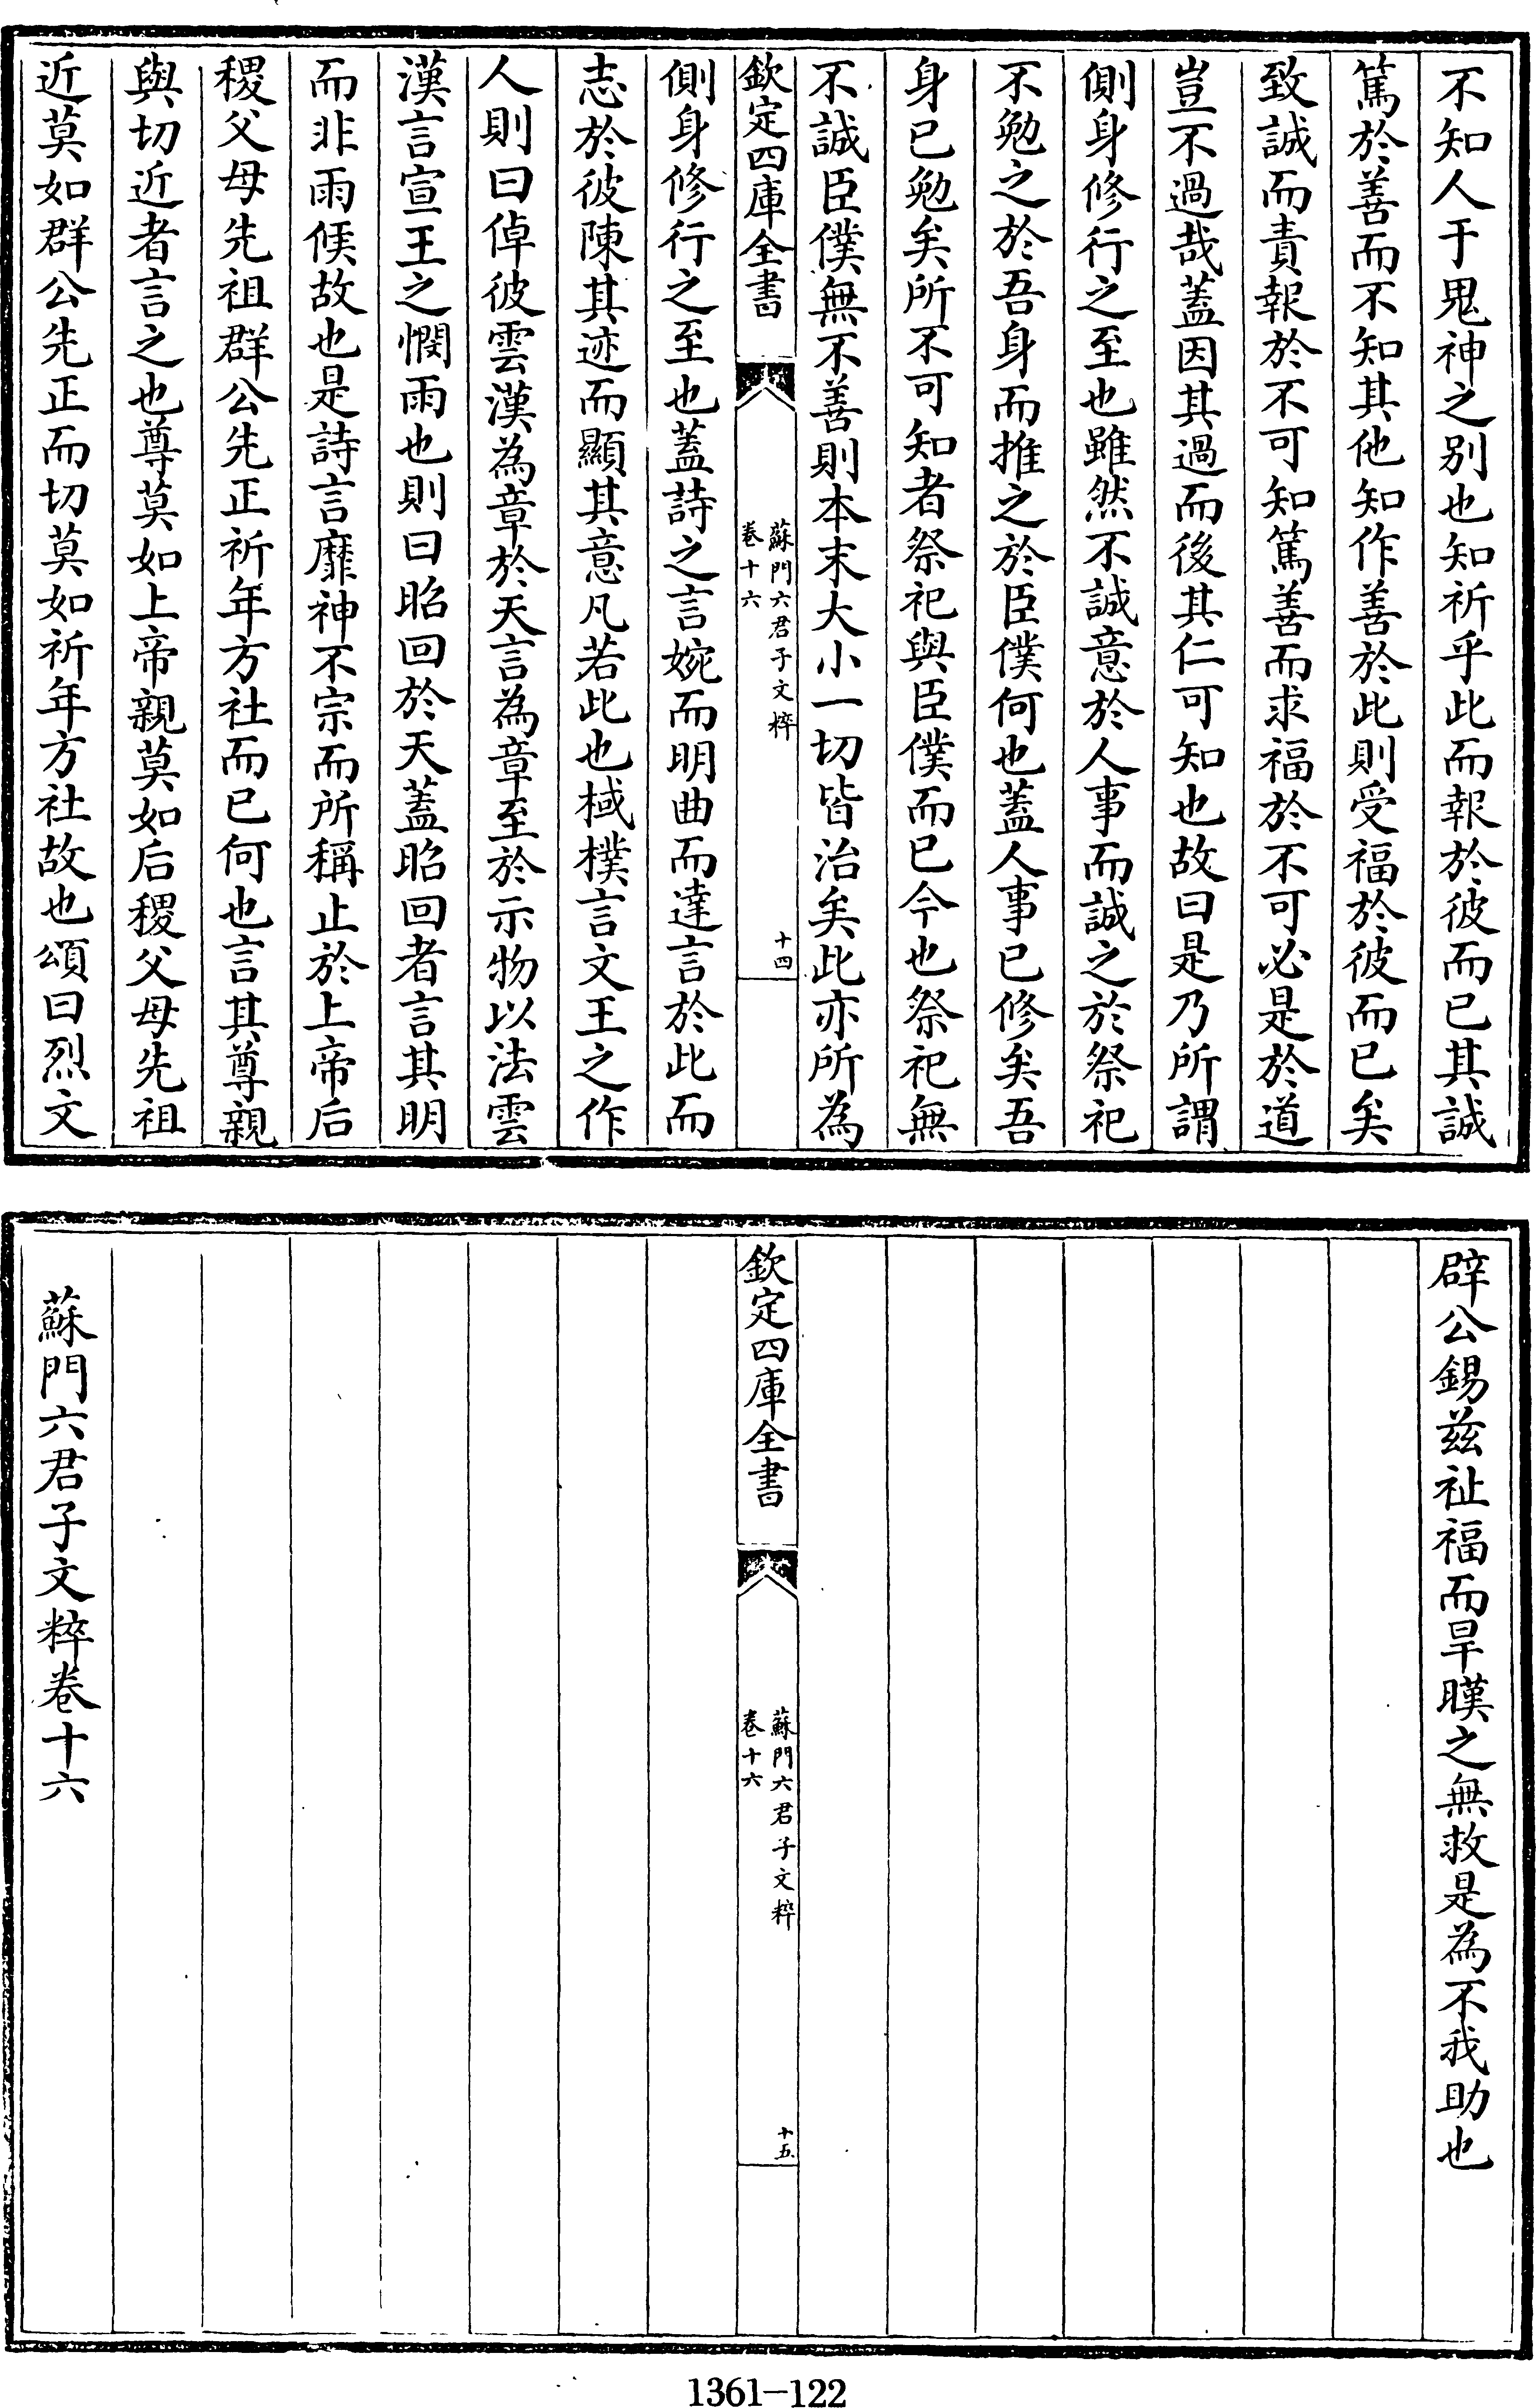 不知人于鬼神之别也知祈乎此而報於彼而已其誠
篤於善而不知其他知作善於此則受福於彼而已矣
致誠而責報於不可知篤善而求福於不可必是於道
豈不過哉蓋因其過而後其仁可知也故曰是乃所謂
側身修行之至也雖然不誠意於人事而誠之於祭祀
不勉之於吾身而推之於臣僕何也蓋人事已修矣吾
身已勉矣所不可知者祭祀與臣僕而已今也祭祀無
不誠臣僕無不善則本末大小一切皆治矣此亦所為
欽定四庫全書
蘇門六君子文粹
卷十六
十四
側身修行之至也蓋詩之言婉而明曲而達言於此而
志於彼陳其迹而顯其意凡若此也棫樸言文王之作
人則曰倬彼雲漢為章於天言為章至於示物以法雲
漢言宣王之憫雨也則曰昭回於天蓋昭回者言其明
而非雨候故也是詩言靡神不宗而所稱止於上帝后
稷父母先祖群公先正祈年方社而已何也言其尊親
與切近者言之也尊莫如上帝親莫如后稷父母先祖
近莫如群公先正而切莫如祈年方社故也頌曰烈文
辟公錫茲祉福而旱暵之無救是為不我助也
欽定四庫全書
蘇門六君子文粹
卷十六
十五
蘇門六君子文粹卷十六
1361-122